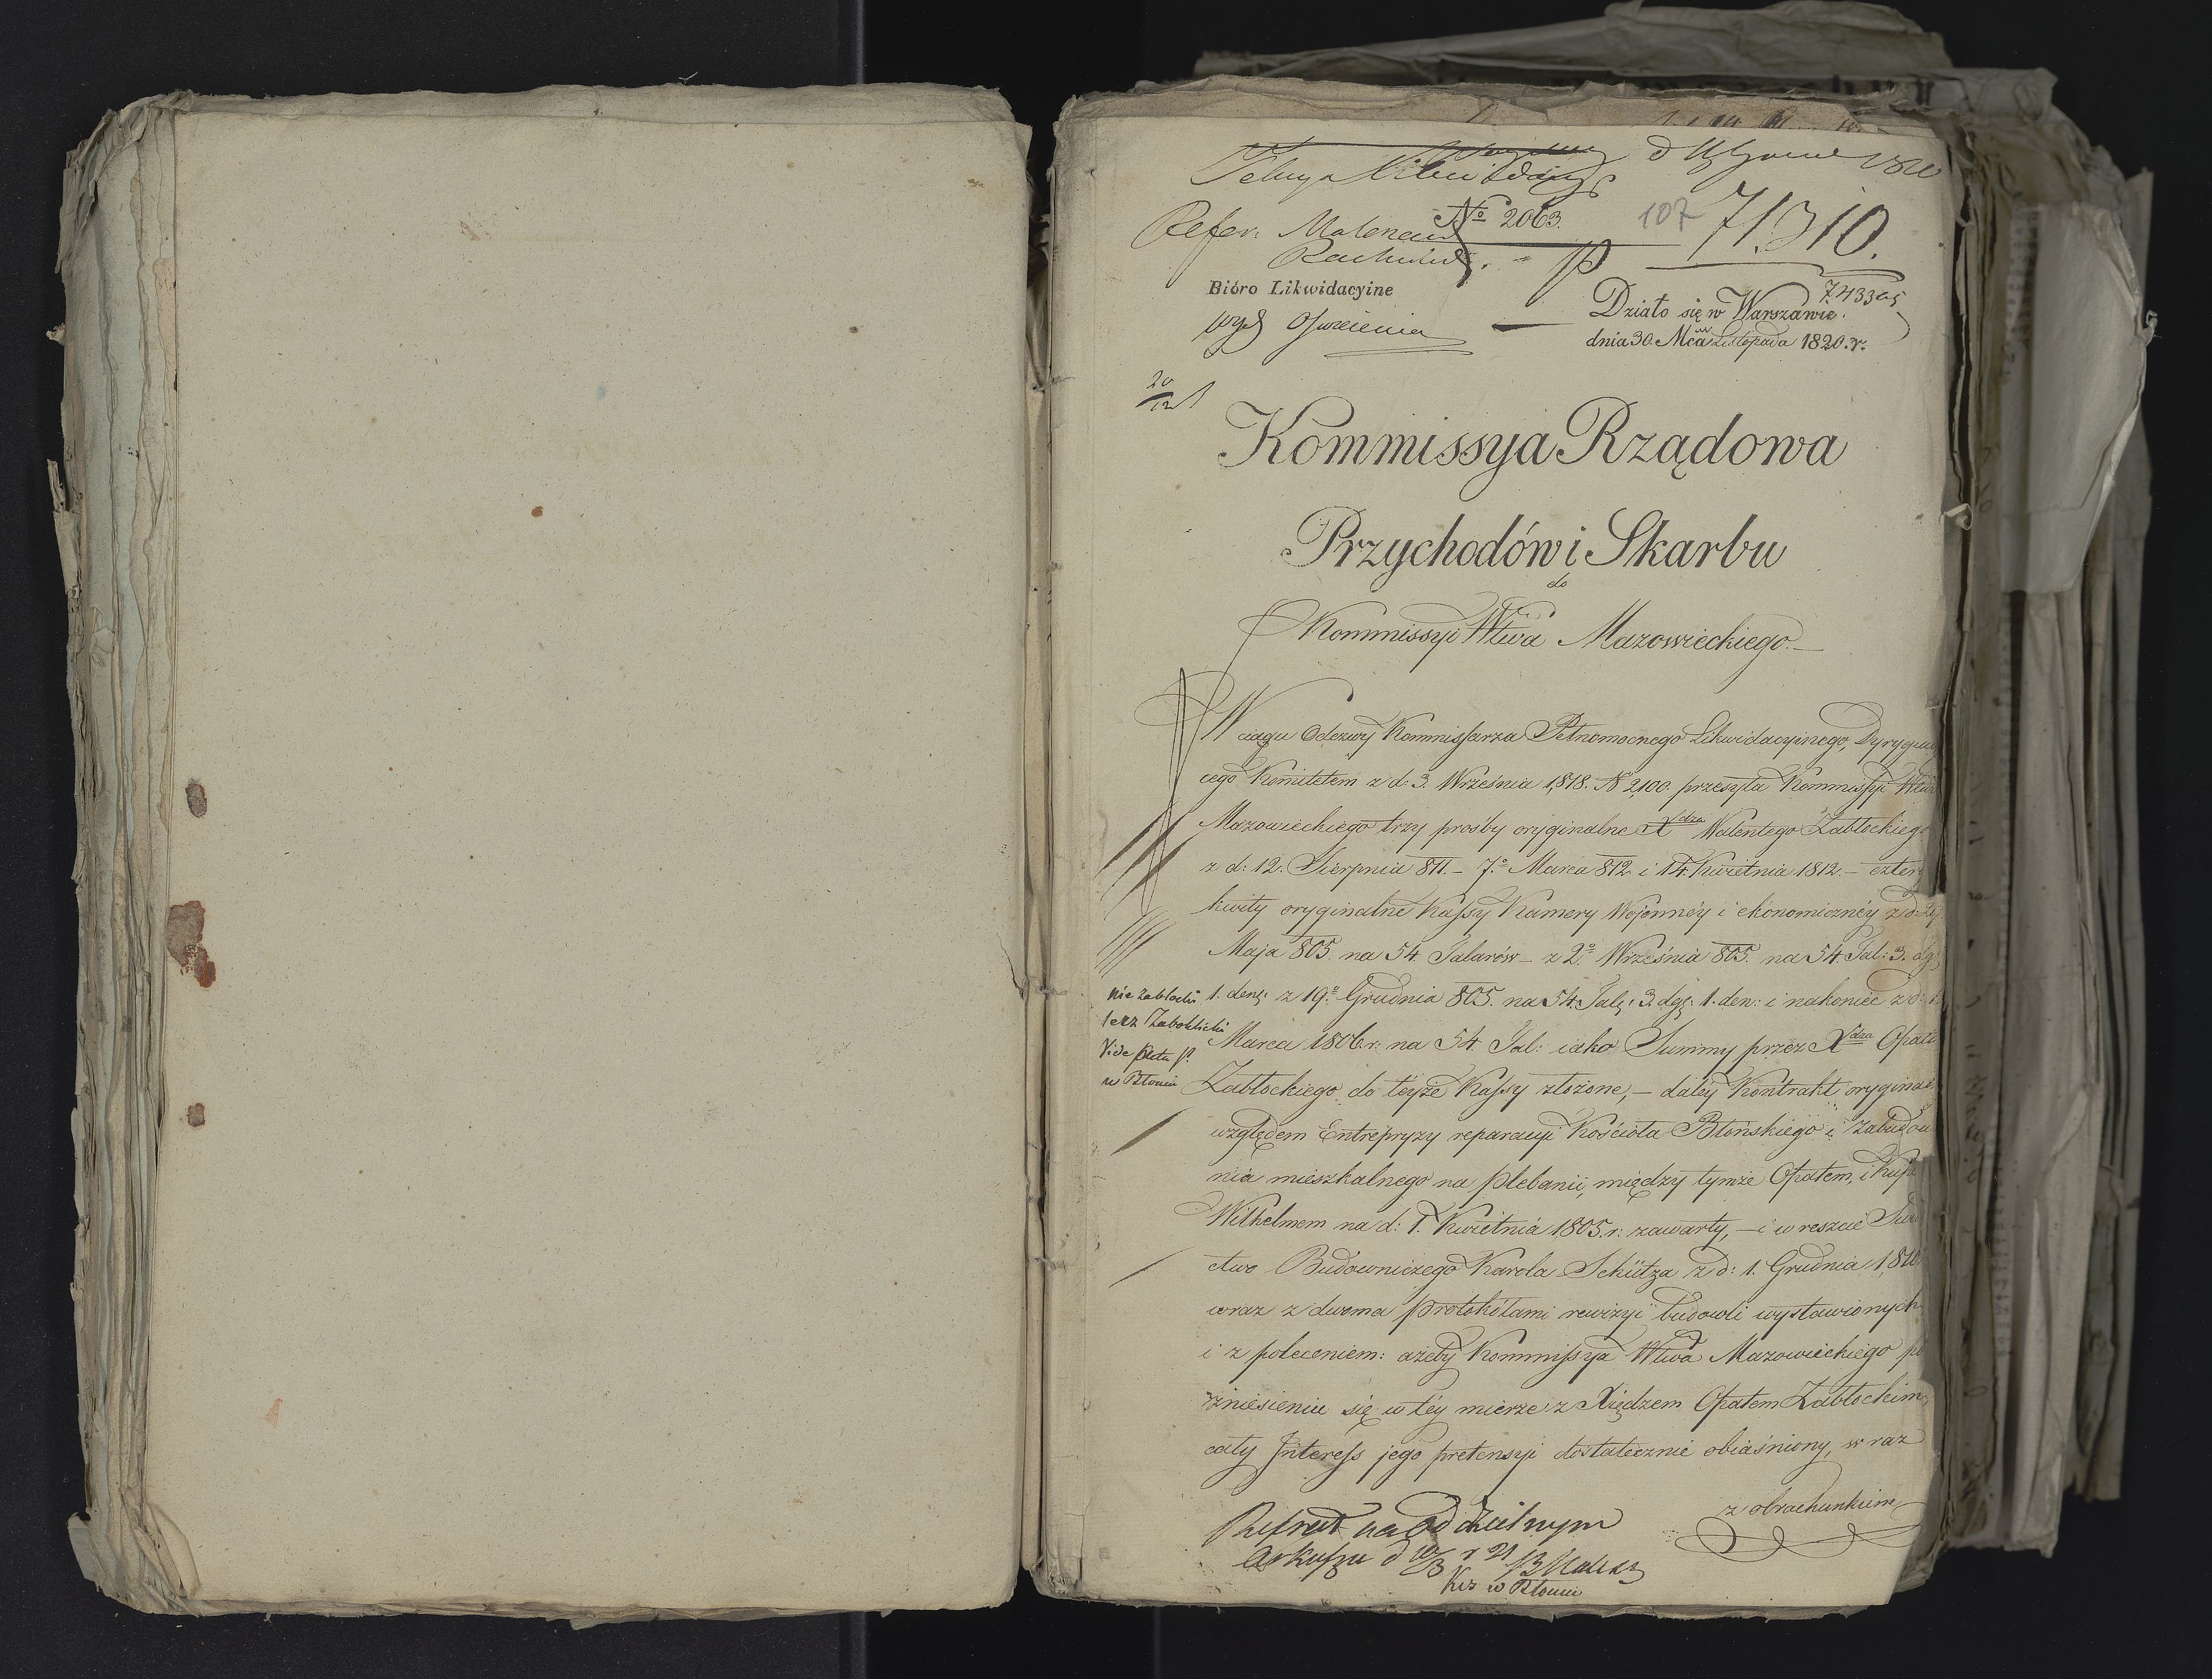 Refer:
No 2063.
107
71310.
Bióro Likwidacyjne
Działo się w Warszawie.
dnia 30. Mca Listopada 1820. r.
20/12
Kommissya Rządowa
Przychodów i Skarbu
do
Kommissyi Wtwa Mazowieckiego.
W ciągu Odezwy Kommissarza Pełnomocnego Likwidacyinego, Dyrygują
cego Komitetem z d: 3. Września 1818. N 2,100. przesyła Kommissyi Wtwa
Mazowieckiego trzy prośby oryginalne Xdza Walentego Zabłockiego
z d: 12. Sierpnia 811. – 7o Marca 812 i 14. Kwietnia 1812. – czter
kwity oryginalne Kassy Kamery Wojennéy i ekonomicznéy z d:
Maja 805. na 54. Talarów – z 2o Września 805. na 54 Tal: 3. dg
1. den: z 19o Grudnia 805. na 54. Tal: 3. dg: 1. den: i nakoniec z d:
Marca 1806. r. na 54. Tal: iako Summy przez Xdza Opata
Zabłockiego do téyże Kassy złożone, – daléy Kontrakt orygina
względem Entrepryzy reparacyi Kościoła Błońskiego i Zabudowa
nia mieszkalnego na plebanii, między tymże Opatem, i Kup
Wilhelmem na d: 1. Kwietnia 1805. r: zawarty, – i w reszcie
ctwo Budowniczego Karola Schütza z d: 1. Grudnia 1,810
wraz z dwoma protokółami rewizyi budowli wystawionych
i z poleceniem: ażeby Kommissya Wtwa Mazowieckiego po
zniesieniu się w téy mierze z Xiędzem Opatem Zabłockim,
cały Interess jego pretensyi dostatecznie obiaśniony, w raz
z obrachunkiem
nie Zabłocki
lecz Zaboklicki
Vide
w Błoniu
na oddzielnym
Arkuszu d
w Błoniu